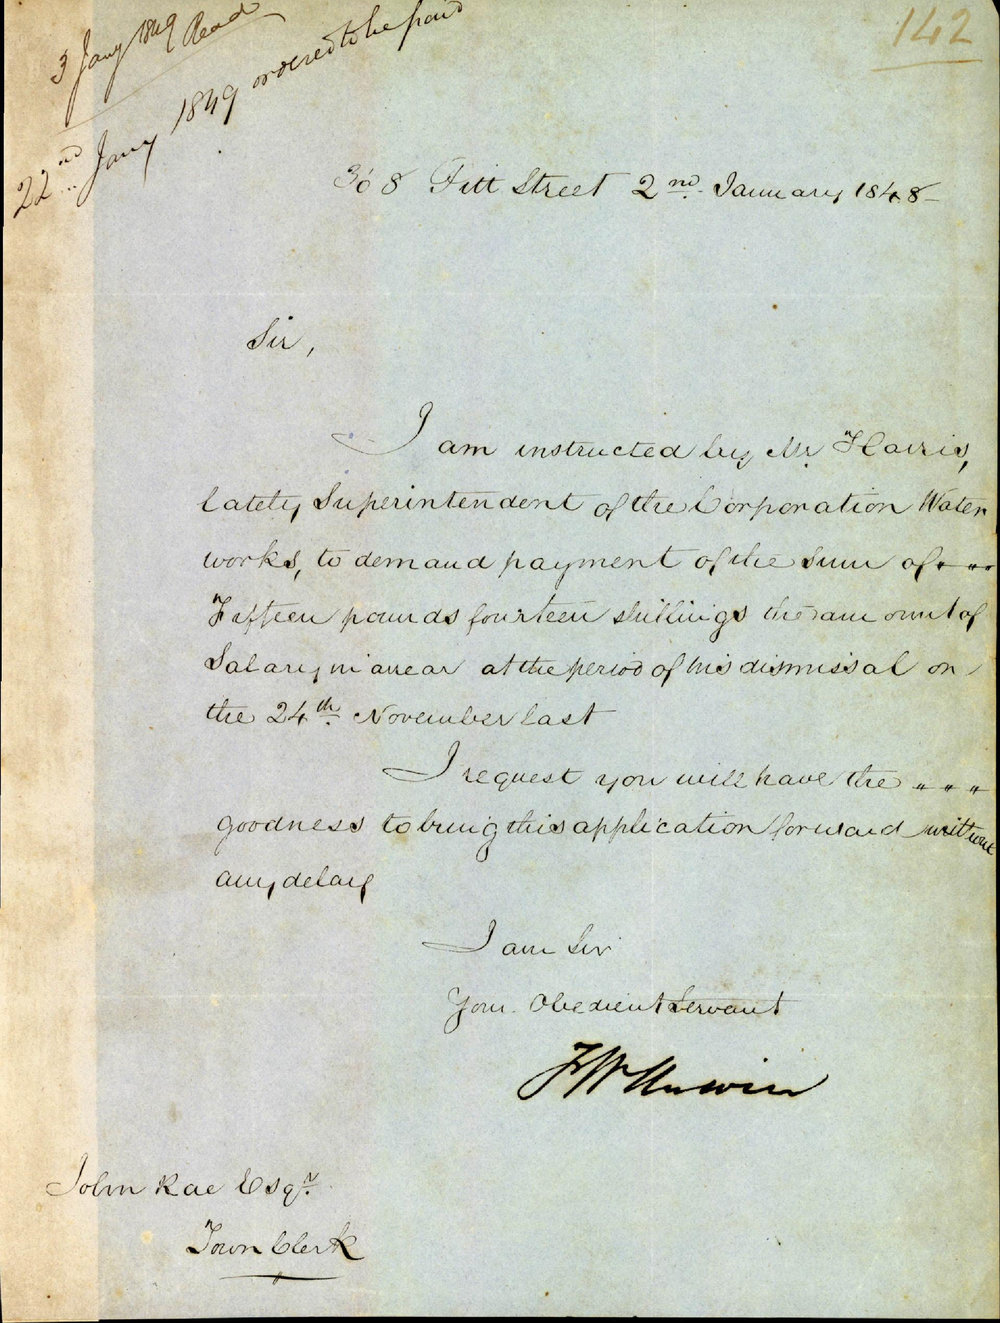 3 Jany 1849 Read
22nd Jany 1849 ordered to be paid
142
308 Pitt Street 2nd. January 1848 -
Sir,
I am instructed by Mr Harris,
lately Superintendent of the Corporation Water
works, to demand payment of the sum of " " "
Fifteen pounds fourteen shillings the amount of
Salary in arrear at the period of his dismissal on
the 24th. November last
I request you will have the " " "
goodness to bring this application forward without
any delay
I am Sir
Your Obedient Servant
F W Unwin
John Rae Esqr.
Town Clerk